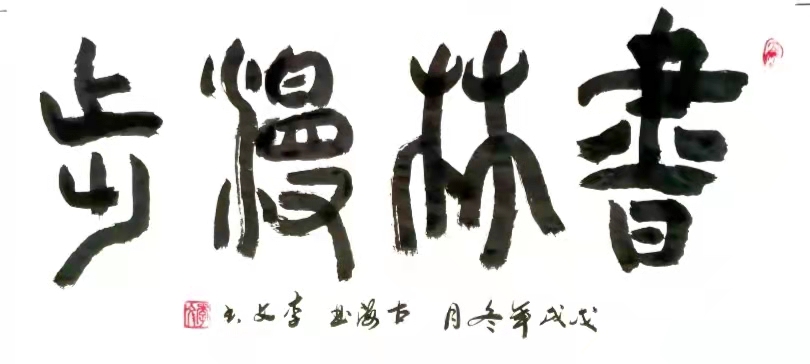 書林漫步
戊戌年冬月 古海曲 李文书